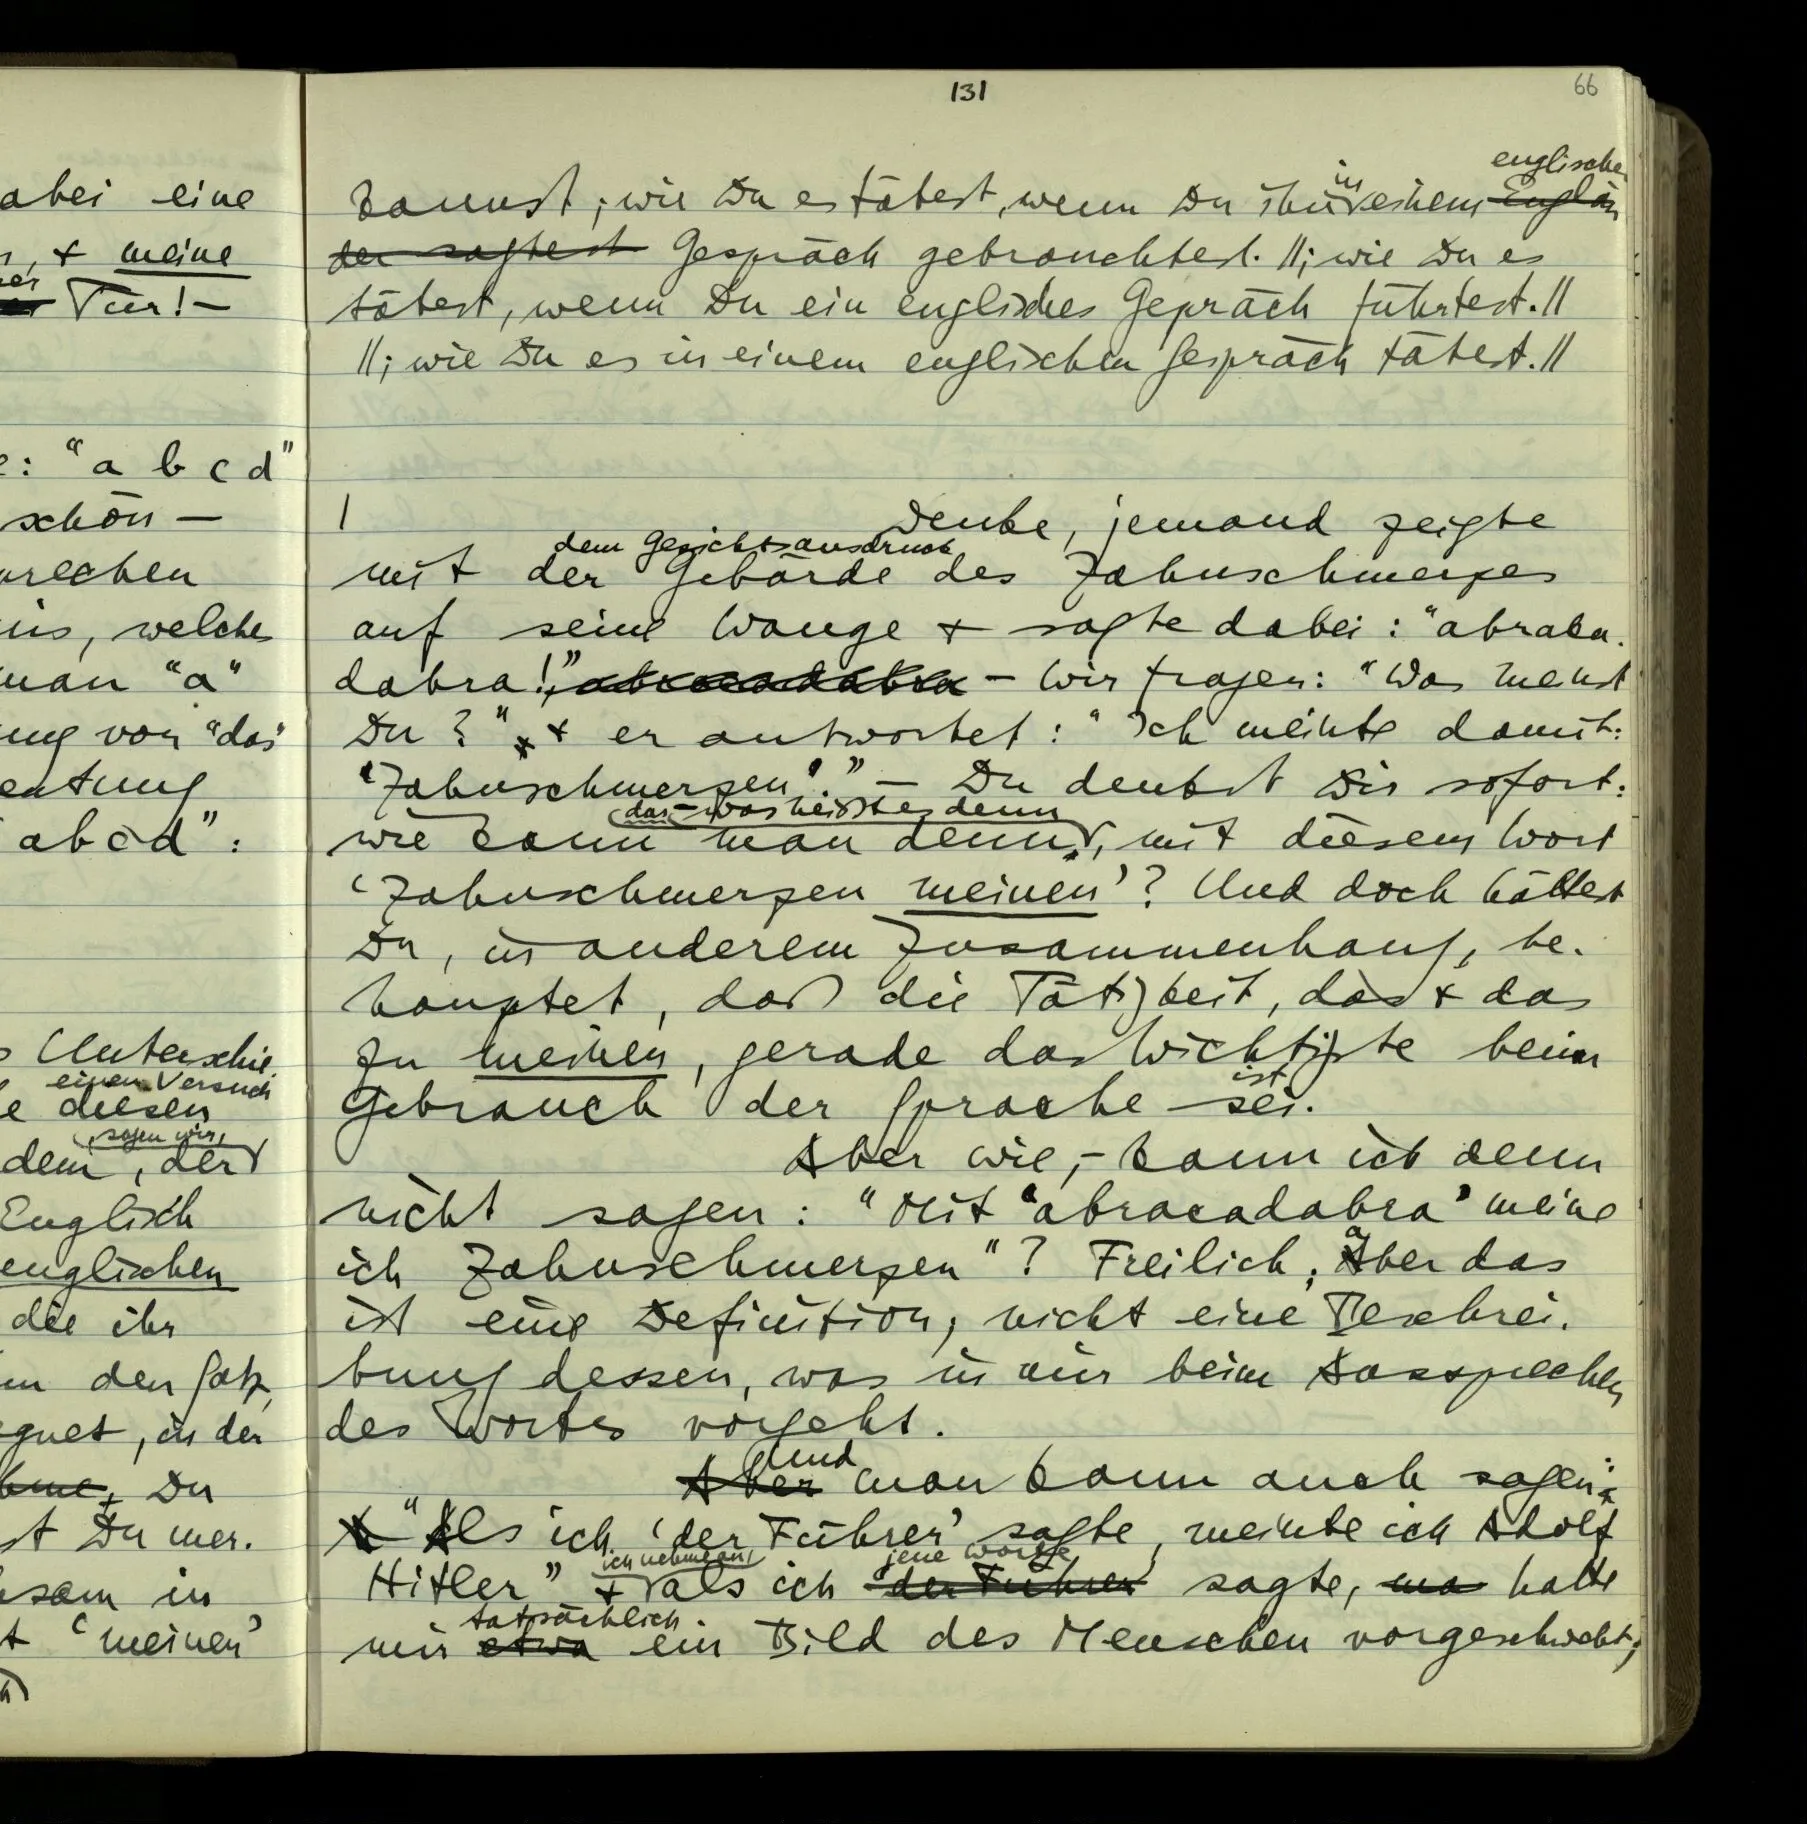 abei eine
, + meine
Tür! —
: "a b c d"
schön —
rechen
is, welches
man "a"
ung von "das"
eutung
abcd":
Unterschie-
einen Versuch
e diesen
, sagen wir,
dem, der
Englisch
englischen
die ihr
den Satz
gnet, in der
Du
st Du mer-
sam in
t 'meinen'
131
66
englischen
in
kannst; wie Du es tätest, wenn Du ihn einem Englän
der sagtest Gespräch gebrauchtest. ||; wie Du es
tätest, wenn Du ein englisches Gepräch führtest. ||
||; wie Du es in einem englischen Gespräch tätest. ||
| Denke, jemand zeigte
dem Gesichtsausdruck
mit der Gebärde des Zahnschmerzes
auf seine Wange + sagte dabei: "abraca-
dabra!" abracadabra – Wir fragen: "Was meinst
Du?" + er antwortet: "Ich meinte damit:
'Zahnschmerzen'." — Du denkst Dir sofort:
das – was heißt es denn
wie kann man denn, mit diesem Wort
'Zahnschmerzen meinen'? Und doch hättest
Du, in anderem Zusammenhang, be-
hauptet, daß die Tätigkeit, das + das
zu meinen, gerade das Wichtigste beim
ist
Gebrauch der Sprache sei.
Aber wie, – kann ich denn
nicht sagen: "Mit 'abracadabra' meine
a
ich Zahnschmerzen"? Freilich; Aber das
ist eine Definition, nicht eine Beschrei-
bung dessen, was in mir beim Aussprechen
des Wortes vorgeht.
Und
Aber man kann auch sagen:
"Als ich 'der Führer' sagte, meinte ich Adolf
ich nehme an, jene Worte
Hitler" + als ich 'der Führer' sagte, hatte
tatsächlich
mir etwa ein Bild des Menschen vorgeschwebt;